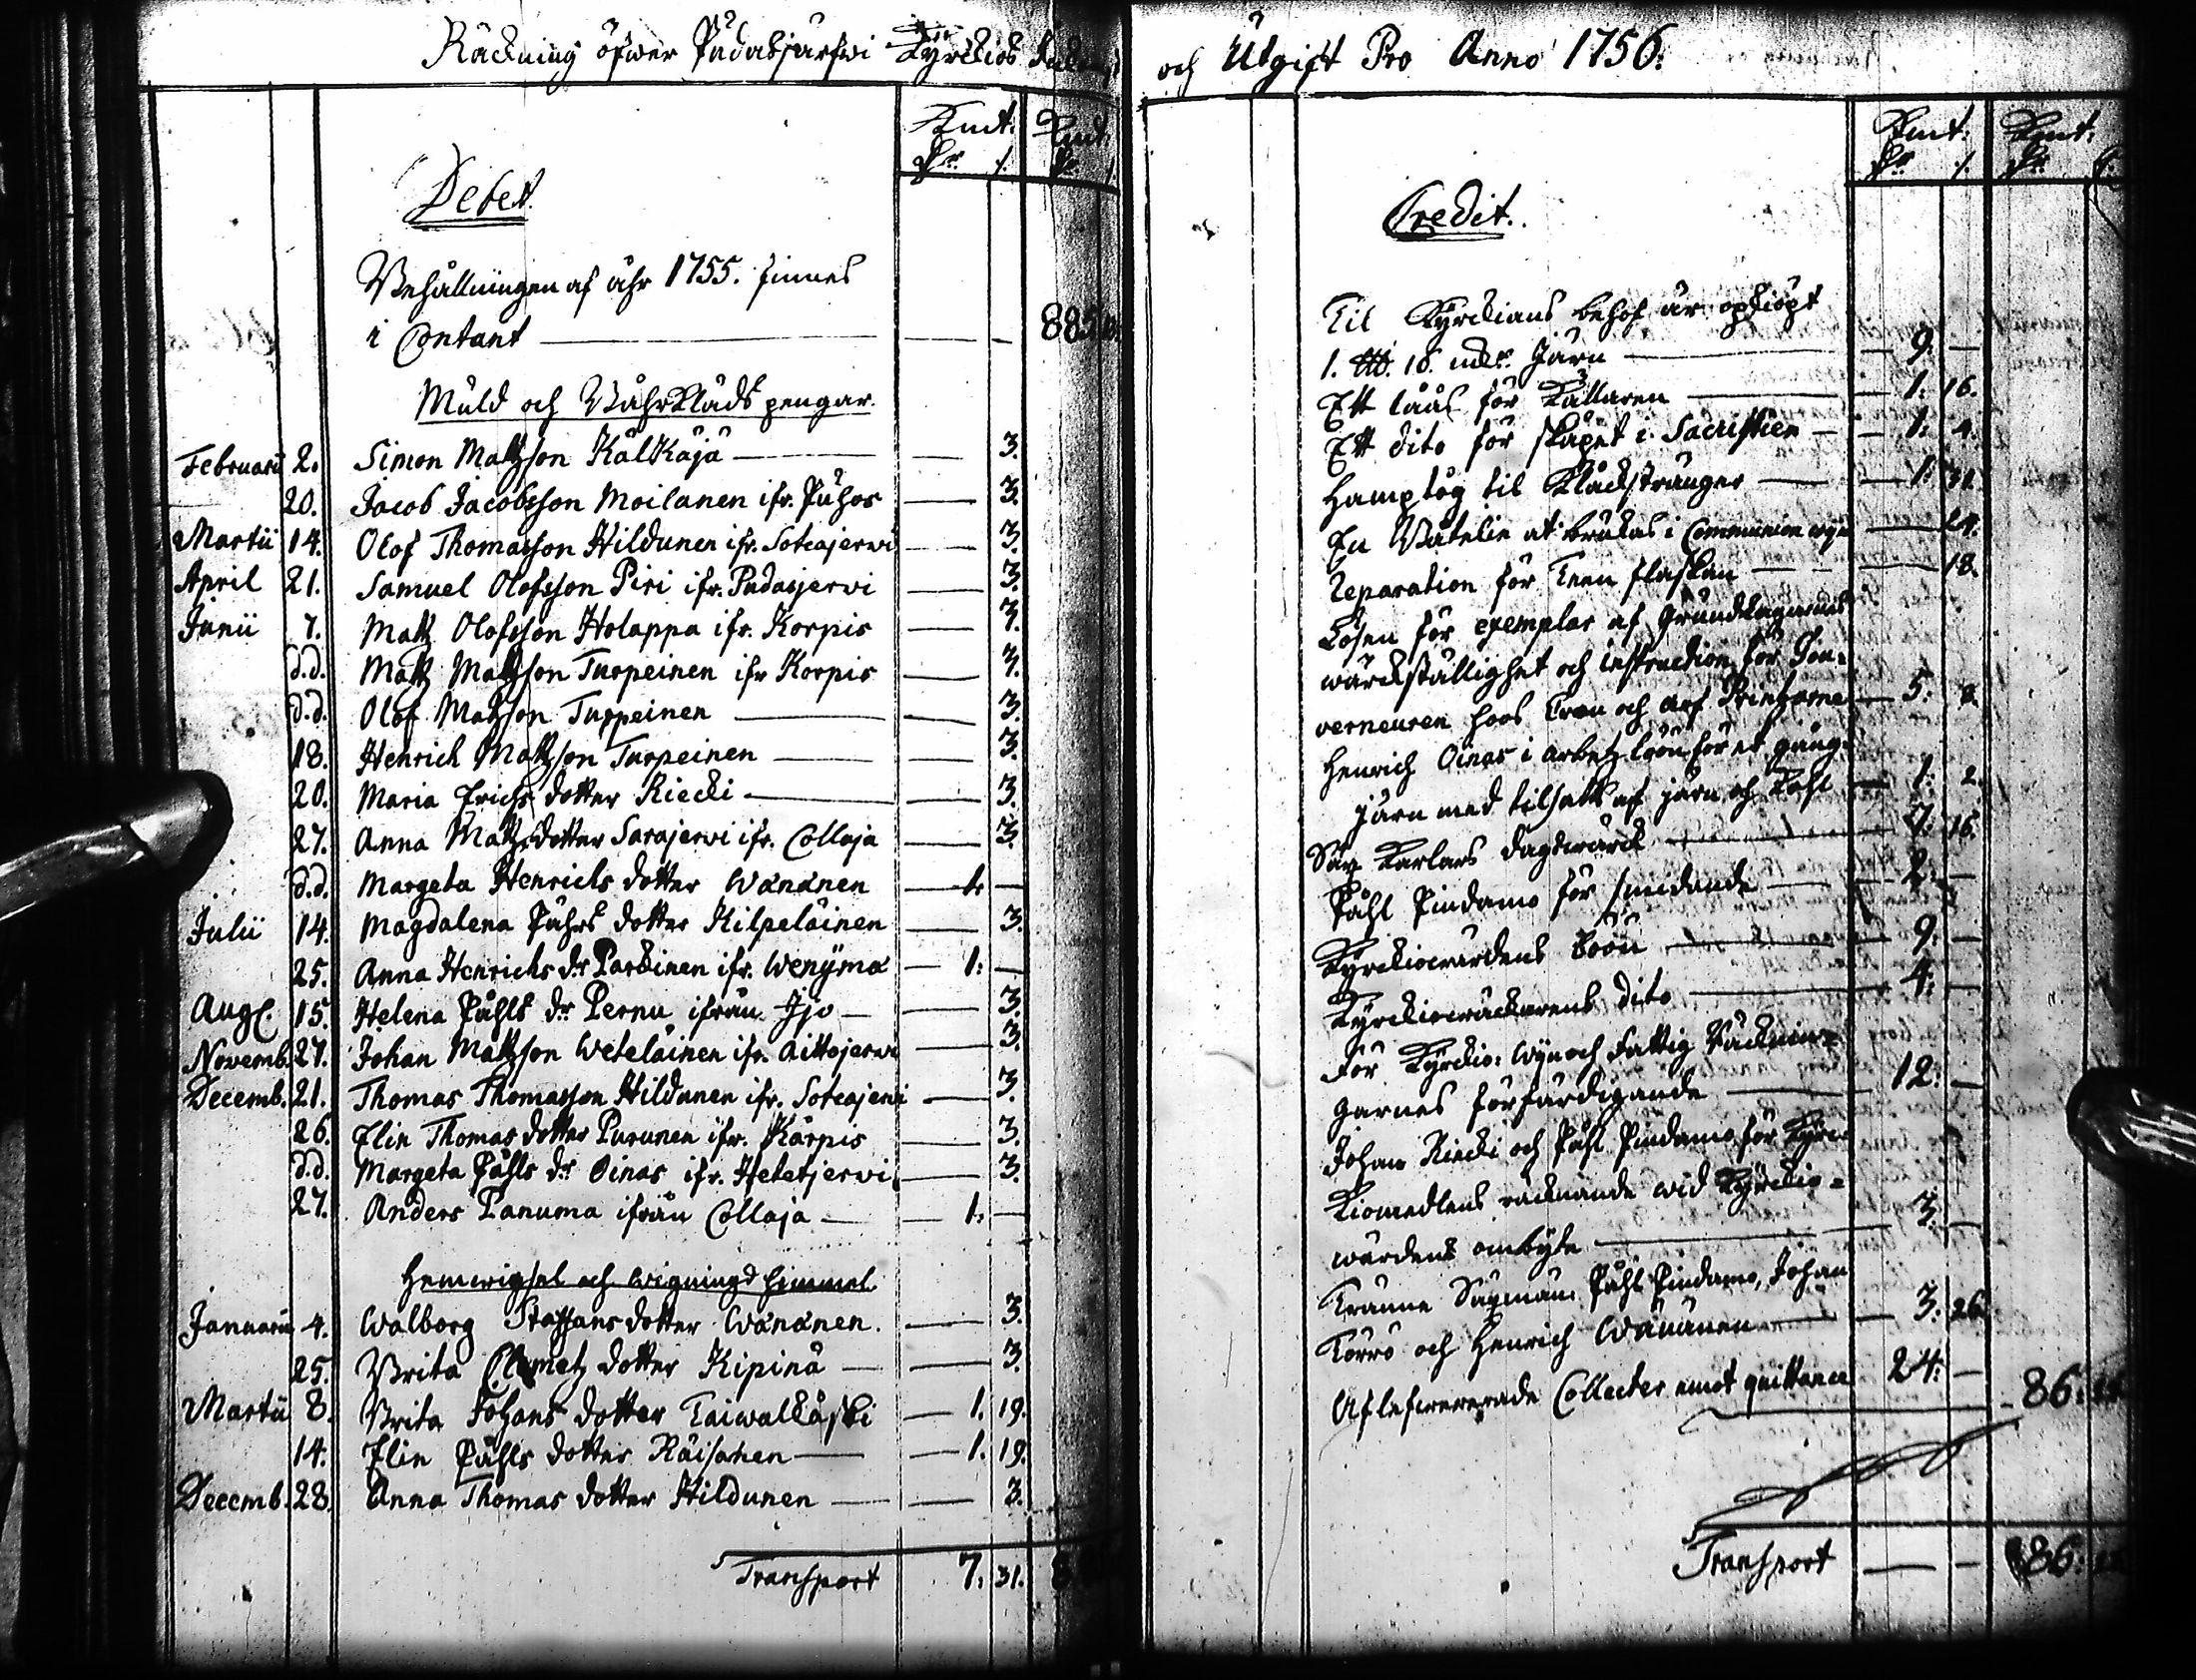 Räckning öfwer Pudasjärfwi Kyrckios
och Utgift Pro Anno 1756.
Kmt: Kmt:
Debet.
Behållningen af åhr 1755. finnes
i Contant — 885
Muld och Båhrklädspengar.
Februarii 2. Simon Matzson Kälkäjä — 3.
20. Jacob Jacobsson Moilanen ifr. Puhos — 3.
Martii 14. Olof Thomasson Hildunen ifr. Soteajerwi — 3.
April 21. Samuel Olofsson Piri ifr. Pudasjervi — 3.
Junii 7. Matz Olofsson Holappa ifr. Korpis — 3.
d.d. Matz Matzson Turpeinen ifr Korpis — 3.
d.d. Olof Matzson Turpeinen — 3.
18. Henrich Matzson Turpeinen — 3.
20. Maria Erichs dotter Riecki — 3.
27. Anna Matz dotter Sarajerwi ifr. Collaja — 3.
d.d. Margeta Henrichs dotter Wänänen — 1. —
Julii 14. Magdalena Påhls dotter Kilpeläinen — 3.
25. Anna Henrichs dr Parkinen ifr. Wengmä — 1: —
Aug. 15. Helena Påhls dr Pernu ifrån Ijo — 3.
Novemb. 27. Johan Matzson Weteläinen ifr. Aittojerwi — 3.
Decemb. 21. Thomas Thomasson Hildunen ifr. Soteajerwi — 3.
26. Elin Thomas dotter Purunen ifr. Kårpis — 3.
d.d. Margeta Påhls dr Oinas ifr. Hetetjerwi — 3.
27. Anders Panuma ifrån Collaja — 1. —
Hemwigsel och wignings himmel.
Januarii 4. Walborg Staffans dotter Wänänen. — 3.
25. Brita Clemetz dotter Kipinä — 3.
Martii 8. Brita Johans dotter Taiwalkåski — 1. 19.
14. Elin Påhls dotter Räisänen — 1. 19.
Decemb. 28. Anna Thomas dotter Hildunen — 3.
Transport 7. 31.
Kmt: Kmt:
Credit.
Til Kyrckians behof är opkiöpt
1. 18. mkr. Järn — 9. —
Ett låås för Källaren — 1. 16.
Ett dito för skåpet i Sacristien — 1. 4.
Hamptåg til Klåckstränger — 1. 31.
En Båtelie at brukas i Communion wijn — 24.
Reparation för Teen flaskan — 18.
Lösen för exemplar af Grundlagarnes
wärckställighet och instruction för Gou-
verneuren hoos Cron och Arf Printzarne — 5.
Henrich Oinas i arbetz löön för et gång-
järn med tilsatts af järn och Kohl — 1. 2.
Karlars dagzwärck — 7. 16.
Påhl Pindamo för smidande — 2. —
Kyrckiowärdens Löön — 9. —
Kyrckiowäckarens dito — 4. —
För Kyrckio: Wijn och Fattig Räcknin-
garnes förfärdigande — 12. —
Johan Riecki och Påhl Pindamo för Kyrc-
kiomedlens räcknande wid Kyrckio-
wärdens ombyte — 3. —
Tranne Säxmän: Påhl Pindamo, Johan
Korro och Henrich Wänänen — 3. 26.
Aflefwererade Collecter emot quittance 24. —
86:
Transport — — 86: